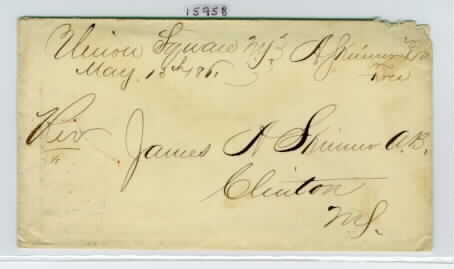 15958
Union Square N.Y. A Skinner P.M.
May 13th 1861 Free
Rev
James A Skinner A.B.
Clinton
N.Y.